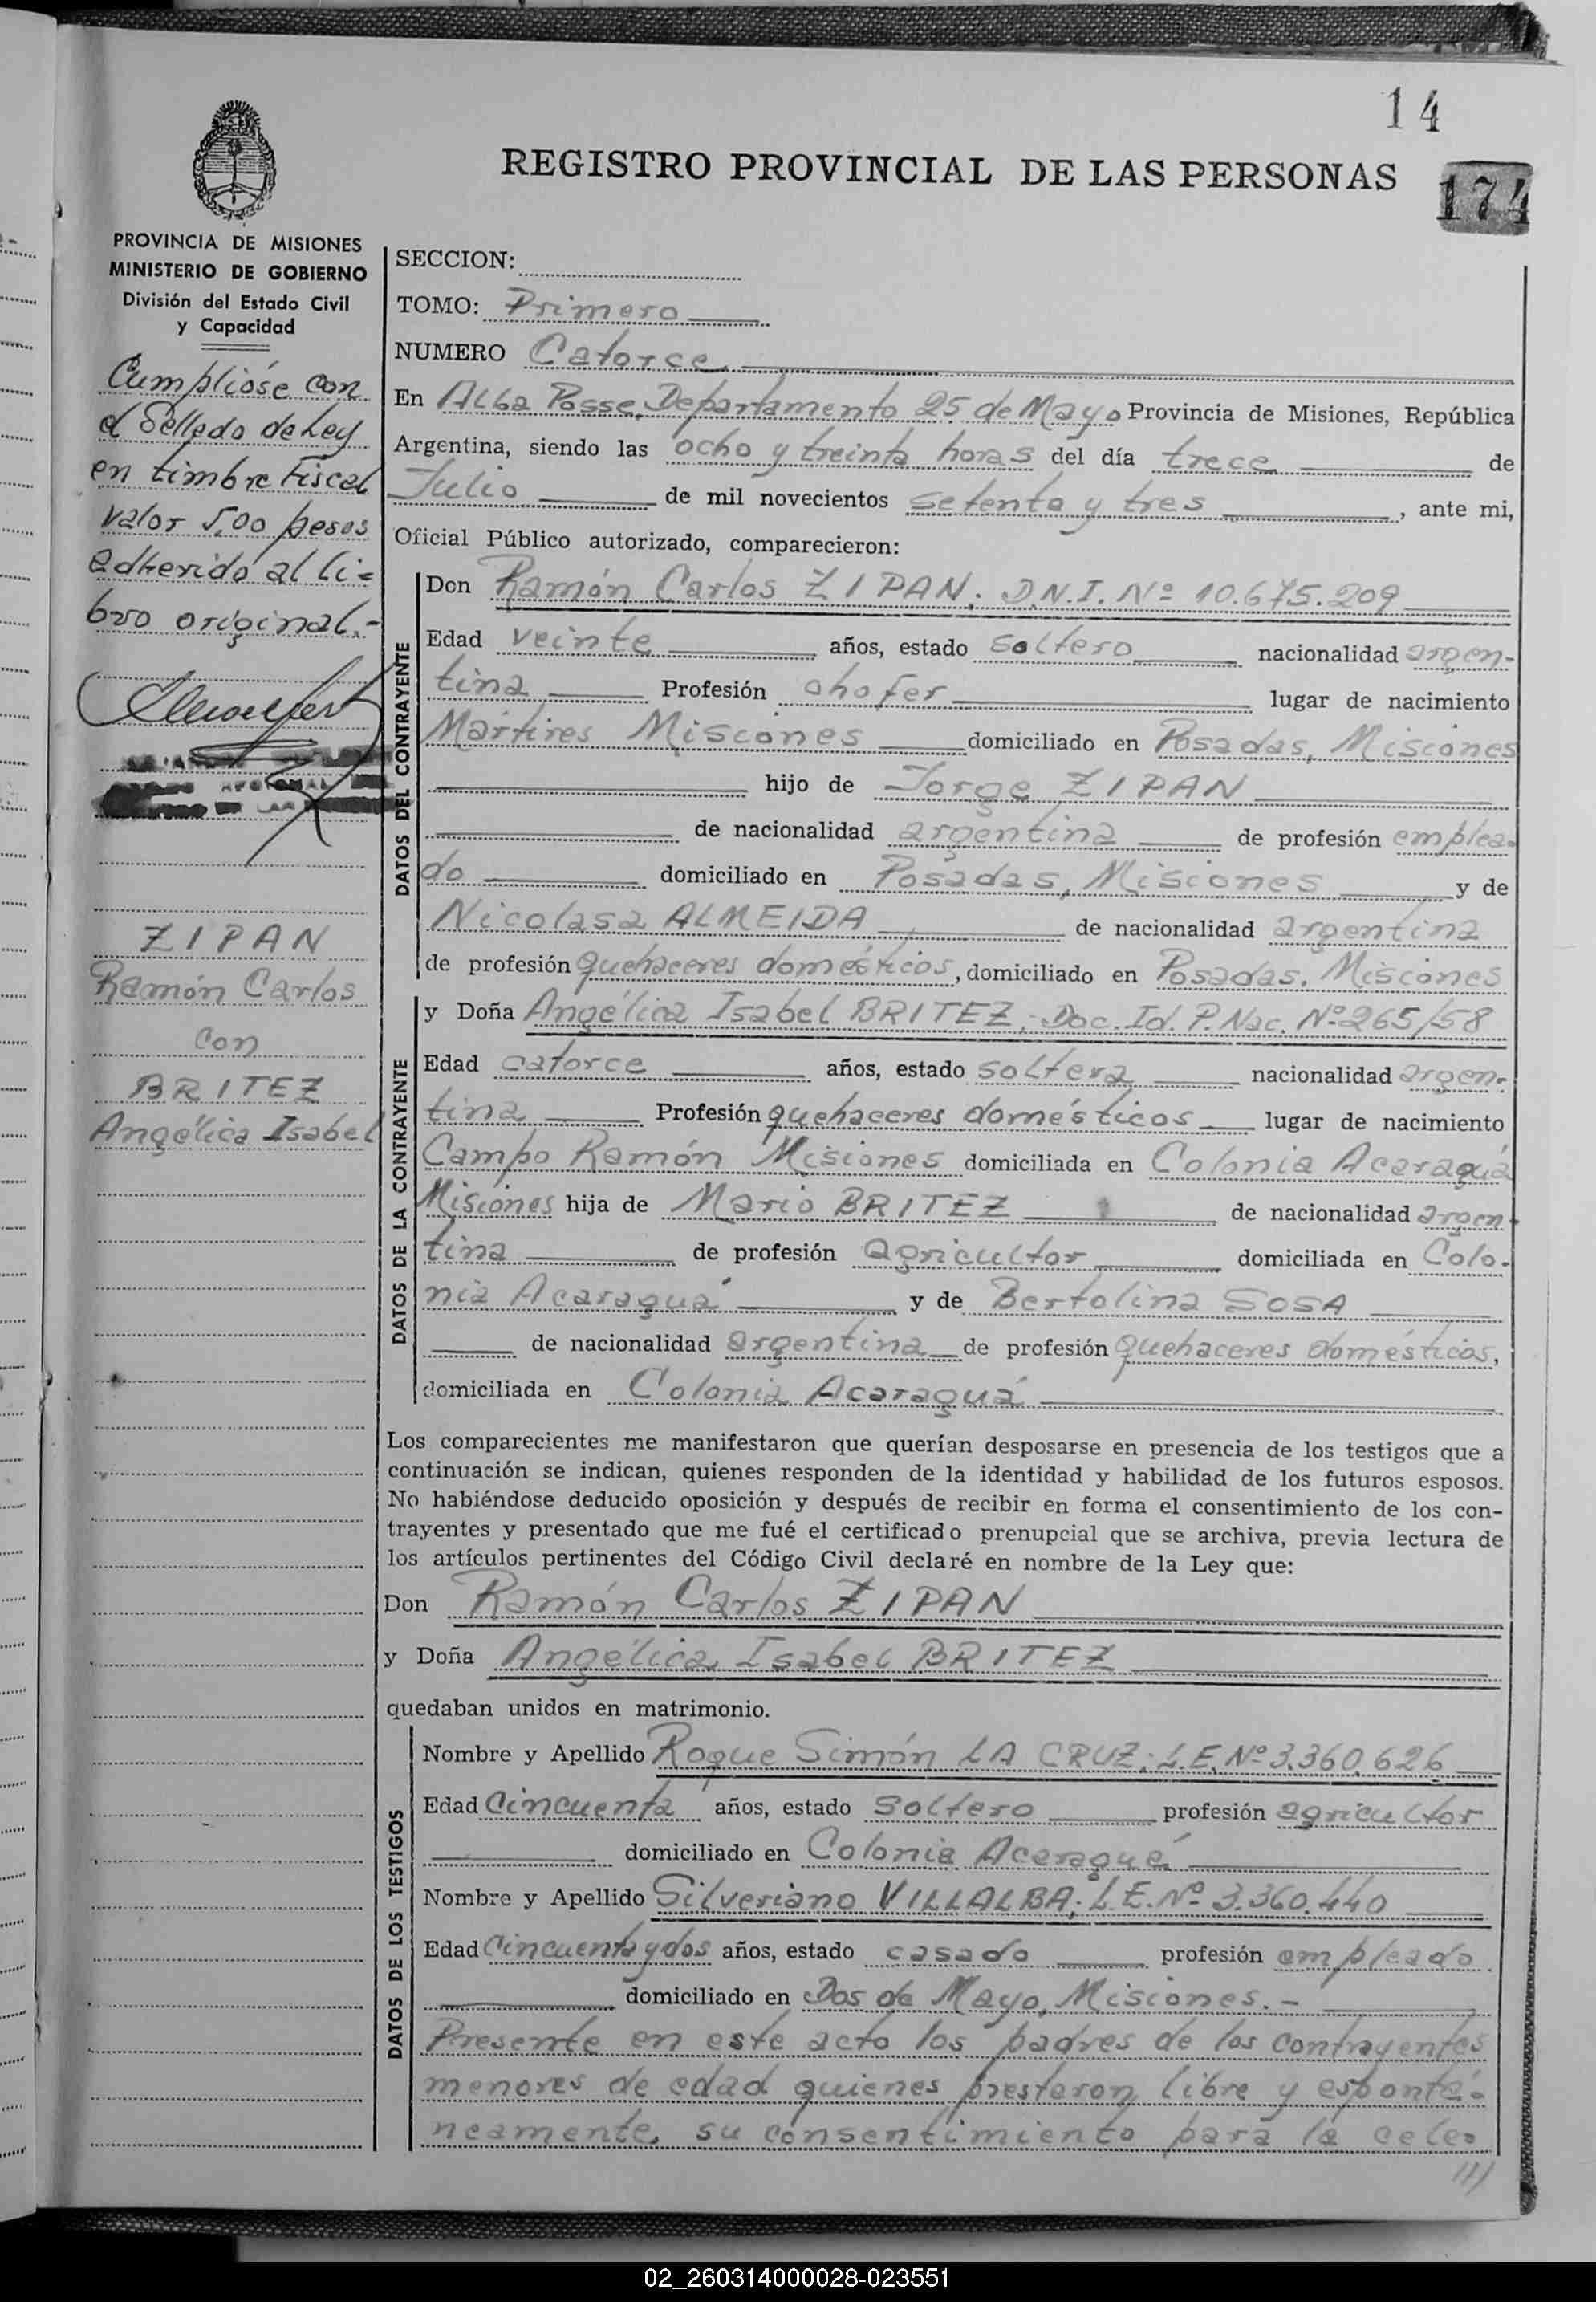 14
REGISTRO PROVINCIAL DE LAS PERSONAS
174
PROVINCIA DE MISIONES
MINISTERIO DE GOBIERNO
División del Estado Civil
y Capacidad
Cumplióse con
el Sellado de Ley
en timbre Fiscal
valor 5,00 pesos
adherido al li=
bro original.-
ZIPAN
Ramón Carlos
con
BRITEZ
Angélica Isabel
SECCION:
TOMO: Primero
NUMERO Catorce
En Alba Posse, Departamento 25 de Mayo Provincia de Misiones, República
Argentina, siendo las ocho y treinta horas del día trece de
Julio de mil novecientos setenta y tres, ante mi,
Oficial Público autorizado, comparecieron:
DATOS DEL CONTRAYENTE
Don Ramón Carlos ZIPAN; D.N.I. Nº 10.675.209
Edad veinte años, estado soltero nacionalidad argen-
tina Profesión chofer lugar de nacimiento
Mártires Misiones domiciliado en Posadas, Misiones
hijo de Jorge ZIPAN
de nacionalidad argentina de profesión emplea-
do domiciliado en Posadas, Misiones y de
Nicolasa ALMEIDA de nacionalidad argentina
de profesión quehaceres domésticos, domiciliado en Posadas, Misiones
DATOS DE LA CONTRAYENTE
y Doña Angélica Isabel BRITEZ; Doc. Id. P. Nac. Nº 265/58
Edad catorce años, estado soltera nacionalidad argen-
tina Profesión quehaceres domésticos lugar de nacimiento
Campo Ramón Misiones domiciliada en Colonia Acaraguá
Misiones hija de Mario BRITEZ de nacionalidad argen-
tina de profesión agricultor domiciliada en Colo-
nia Acaraguá y de Bertolina SOSA
de nacionalidad argentina de profesión quehaceres domésticos,
domiciliada en Colonia Acaraguá
Los comparecientes me manifestaron que querían desposarse en presencia de los testigos que a
continuación se indican, quienes responden de la identidad y habilidad de los futuros esposos.
No habiéndose deducido oposición y después de recibir en forma el consentimiento de los con-
trayentes y presentado que me fué el certificado prenupcial que se archiva, previa lectura de
los artículos pertinentes del Código Civil declaré en nombre de la Ley que:
Don Ramón Carlos ZIPAN
y Doña Angélica Isabel BRITEZ
quedaban unidos en matrimonio.
DATOS DE LOS TESTIGOS
Nombre y Apellido Roque Simón LA CRUZ; L.E. Nº 3.360.626
Edad Cincuenta años, estado soltero profesión agricultor
domiciliado en Colonia Acaraguá
Nombre y Apellido Silveriano VILLALBA; L.E. Nº 3.360.440
Edad Cincuenta y dos años, estado casado profesión empleado
domiciliado en Dos de Mayo, Misiones.-
Presente en este acto los padres de los contrayentes
menores de edad quienes prestaron libre y espontá-
neamente su consentimiento para la cele-
///
02_260314000028-023551